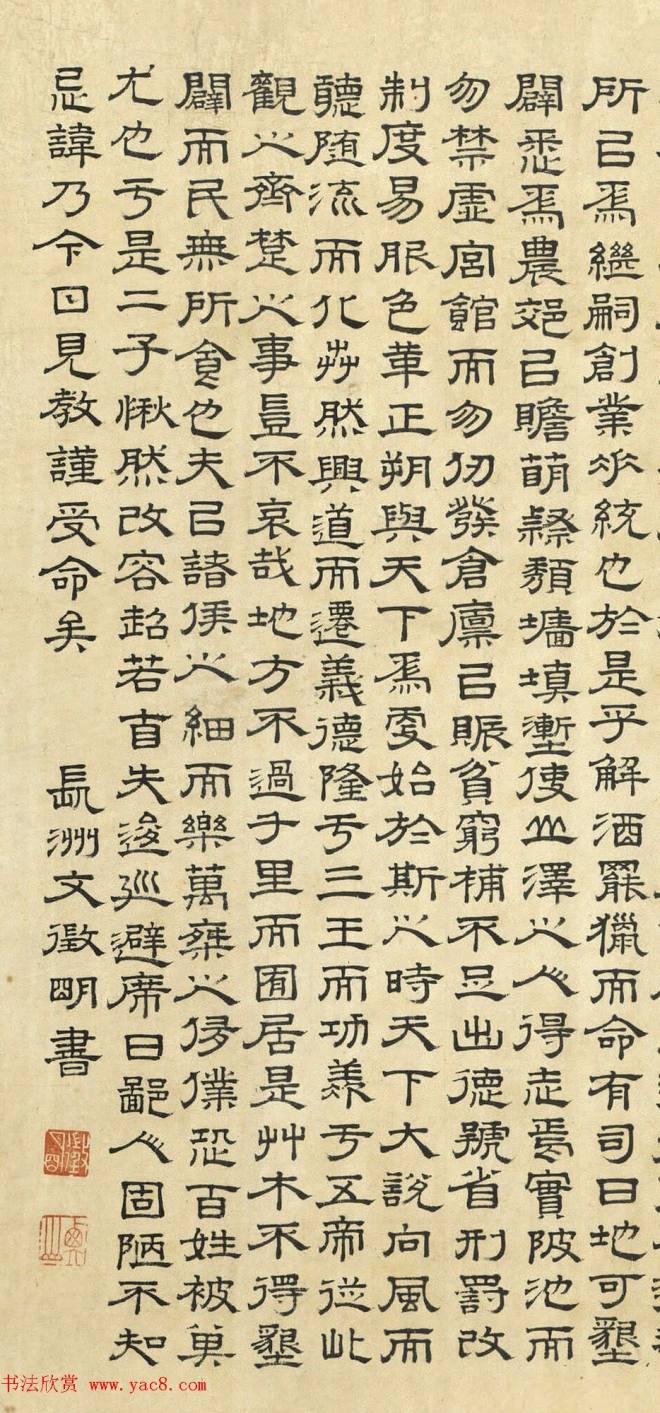 所㠯爲繼嗣創業垂統也於是乎解酒罷獵而命有司曰地可墾
闢悉爲農郊㠯贍萌隸頹墻填塹使山澤之人得走焉實陂池而
勿禁虛宮館而勿仞發倉廩㠯賑貧窮補不足出德號省刑罰改
制度易服色革正朔與天下爲更始於斯之時天下大說向風而
聽随流而化芔然興道而遷義德隆于三王而功羨于五帝從此
觀之齊楚之事豈不哀哉地方不過千里而囿居是艸木不得墾
闢而民無所食也夫㠯諸侯之細而樂萬乘之侈僕恐百姓被其
尤也于是二子愀然改容超若自失逡巡避席曰鄙人固陋不知
忌諱乃今日見教謹受命矣 長洲文徵明書
徵明
书法欣赏 www.yac8.com